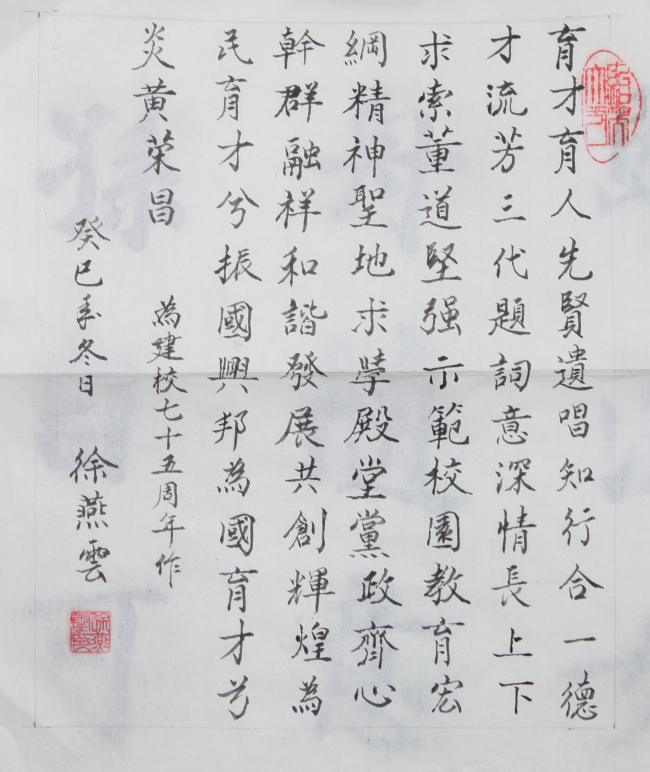 育才育人先賢遺唱知行合一德
才流芳三代題詞意深情長上下
求索董道堅强示範校園教育宏
綱精神聖地求學殿堂黨政齊心
幹群融祥和諧發展共創輝煌為
民育才兮振國興邦為國育才兮
炎黃荣昌
為建校七十五周年作
癸巳季冬日 徐燕雲